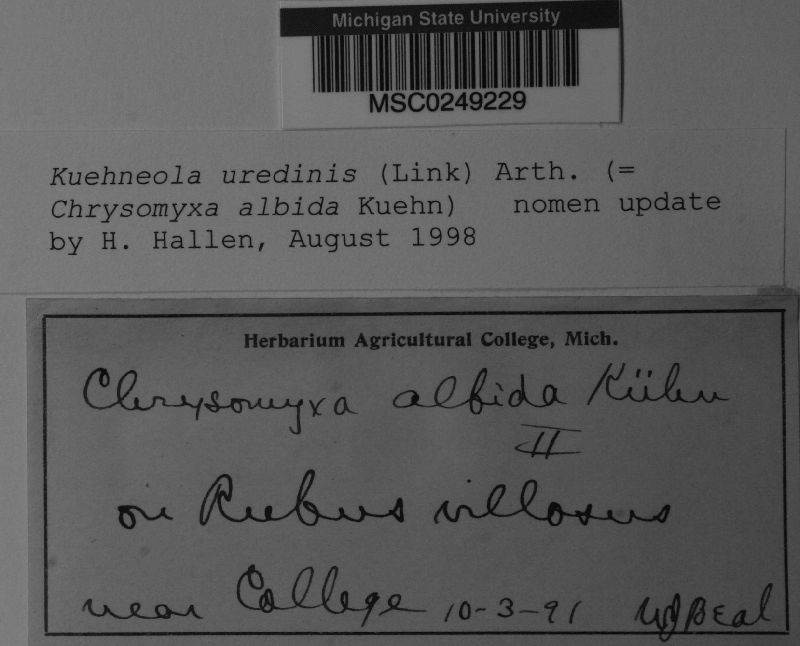 Michigan State University
MSC0249229
Kuehneola uredinis (Link) Arth. (=
Chrysomyxa albida Kuehn) nomen update
by H. Hallen, August 1998
Herbarium Agricultural College, Mich.
Chrysomyxa albida Kühn
II
on Rubus villosus
near College 10-3-91 WJBeal